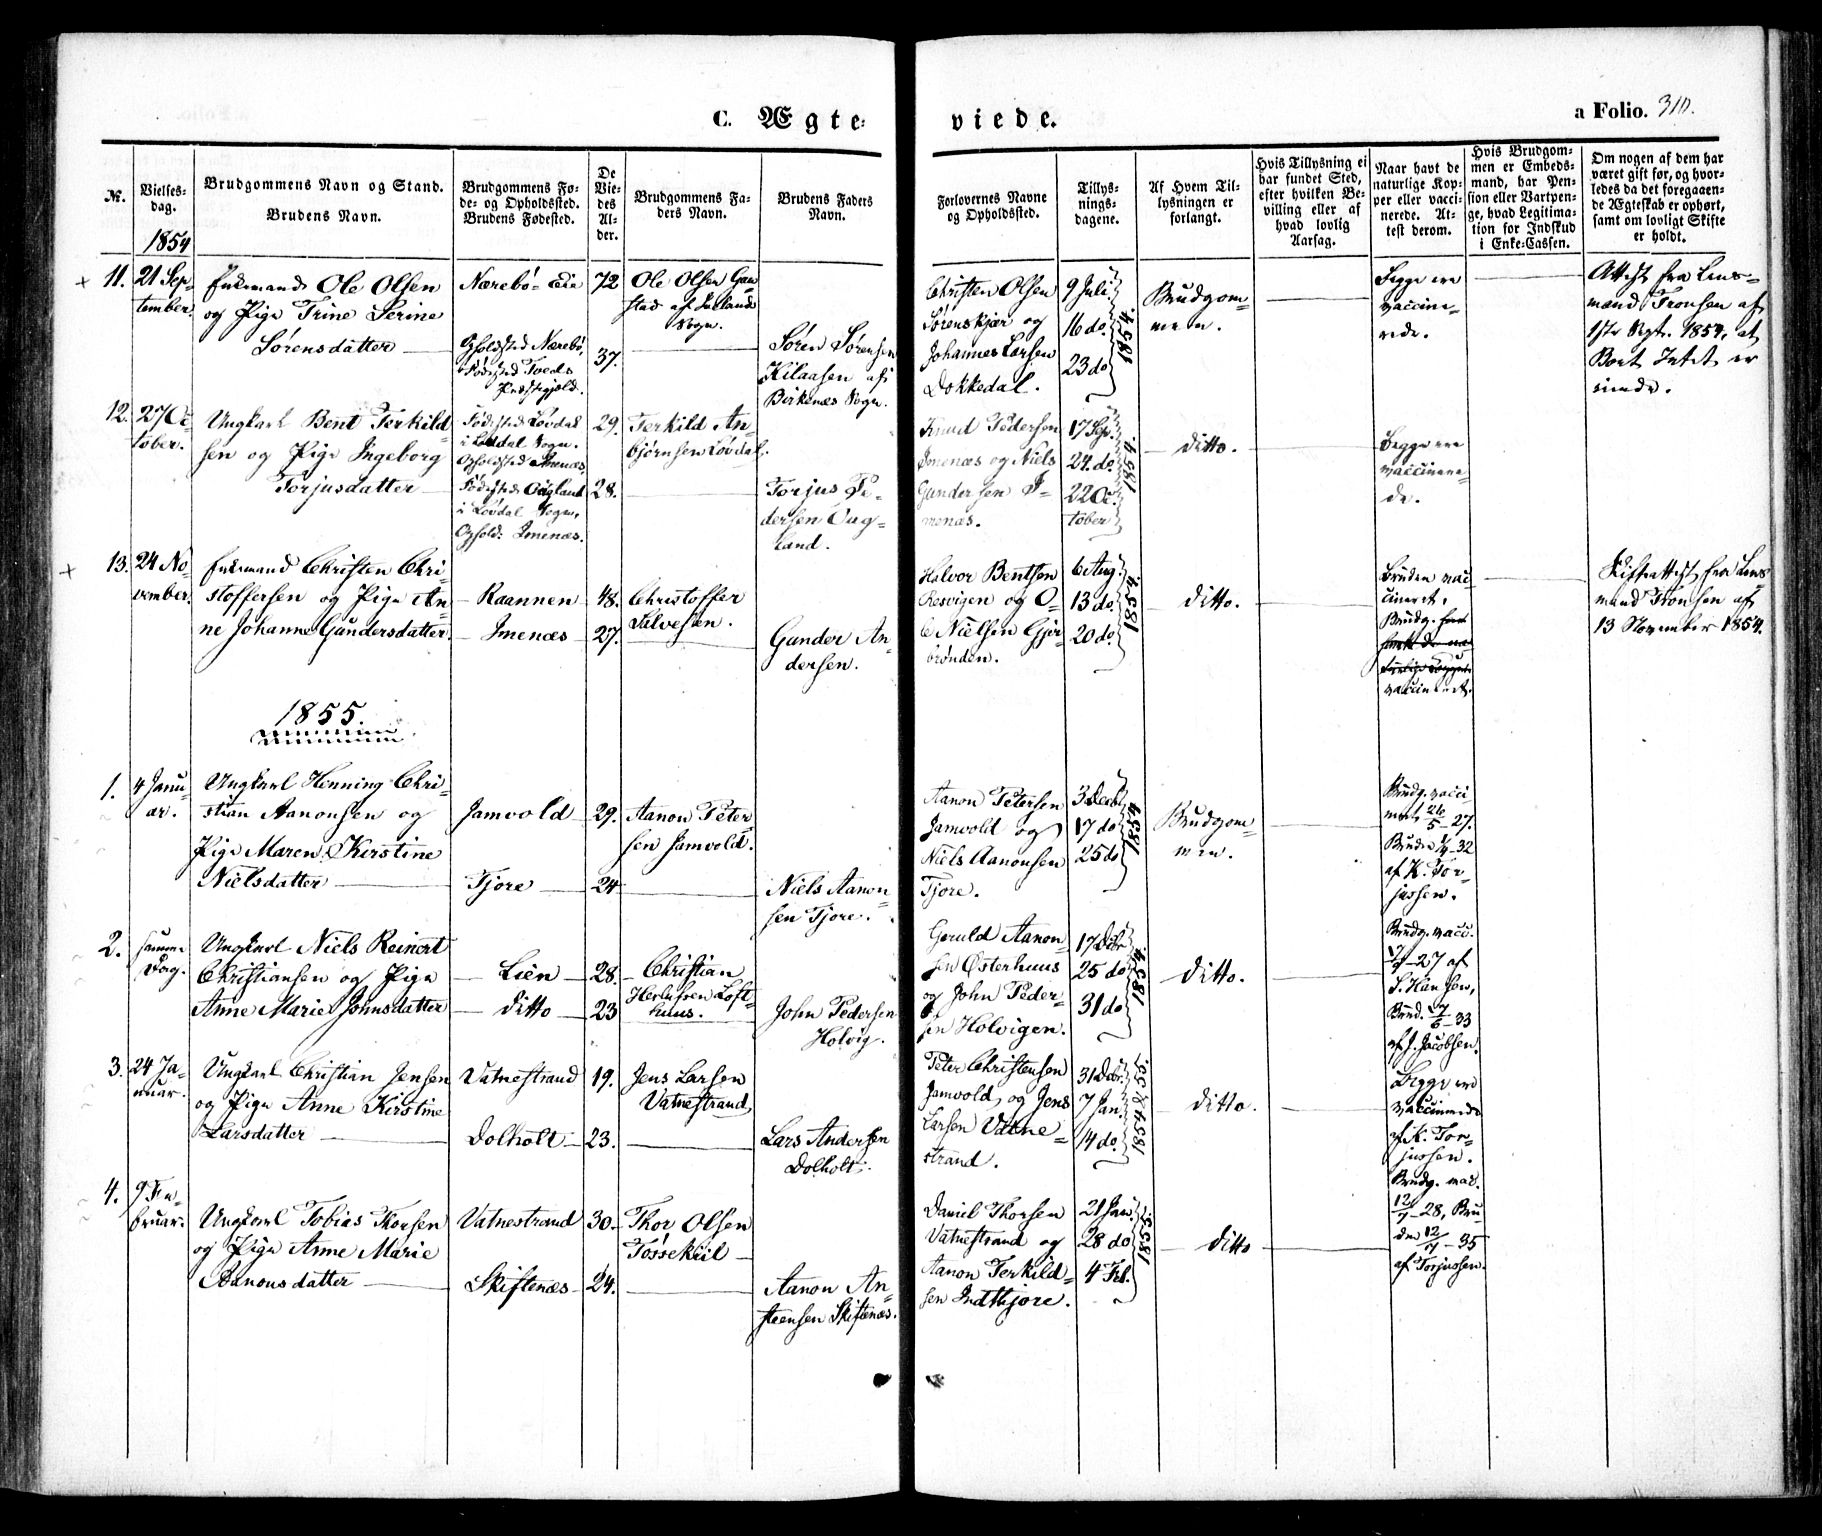 C. Ægte-
viede.
a Folio. 310.
Nr.
Vielses-
dag.
Brudgommens Navn og Stand.
Brudens Navn.
Brudgommens Fø-
de- og Opholdssted.
Brudens Fødested.
De
Vie-
des
Al-
der.
Brudgommens Fa-
ders Navn.
Brudens Faders
Navn.
Forlovernes Navne
og Opholdssted.
Tillys-
nings-
dagene.
Af Hvem Til-
lysningen er
forlangt.
Hvis Tillysning ei
har fundet Sted,
efter hvilken Be-
villing eller af
hvad lovlig
Aarsag.
Naar havt de
naturlige Kop-
per eller vacci-
nerede. At-
test derom.
Hvis Brudgom-
men er Embeds-
mand, har Pen-
sion eller Vartpen-
ge, hvad Legitima-
tion for Indskud
i Enke-Cassen.
Om nogen af dem har
været gift før, og hvor-
ledes da det foregaaen-
de Ægteskab er ophørt,
samt om lovligt Skifte
er holdt.
1854
11.
21 Sep-
tember.
Enkemand Ole Olsen
og Pige Trine Serine
Sørensdatter
Nærebö
Opholdssted Nærebö,
Fødested Toeds
Præstegjeld.
72
37.
Ole Olsen Gan-
stad af
Sogn.
Søren Sørensen
Kilaasen af
Birkenæs Sogn.
Christen Olsen
Sørenskjær og
Johannes Larsen
Dokkedal.
9 Juli
16 do.
23 do
1854.
Brudgom-
men.
Begge ere
vaccine-
rede.
Attest fra Lens-
mand Tronsen af
1ste Sept. 1854, at
Boet Intet er
eiende.
12.
27 Oc-
tober.
Ungkarl Bent Terkild-
sen og Pige Ingeborg
Torjusdatter
Fødested Løvdal
i Løvdal Sogn.
Opholdssted Imenæs.
Fødested Ougland
i Løvdal Sogn,
Ophold: Imenæs.
29.
28.
Terkild An-
bjørnsen Løvdal.
Torjus Pe-
dersen Oug-
land.
Knud Pedersen
Imenæs og Niels
Gundersen I-
menæs.
17 Sep.
24. do.
22 Oc-
tober
1854.
ditto.
Begge ere
vaccinere-
de.
13.
24 No-
vember.
Enkemand Christen Chri-
stoffersen og Pige An-
ne Johanne Gundersdatter.
Raannen
Imenæs
48.
27.
Christoffer
Salvesen.
Gunder An-
dersen.
Halvor Bentsen
Resvigen og O-
le Nielsen Gjør-
brønden.
6 Aug.
13 do.
20 do.
1854
ditto.
Bruden vac-
cineret.
Brudg.
vaccineret.
Skifteattest fra Lens-
mand Tronsen af
13 November 1854.
1855.
1.
4 Janu-
ar.
Ungkarl Henning Chri-
stian Aanonsen og
Pige Maren Kirstine
Nielsdatter
Jamvold
Tjore
29.
24
Aanon Peter-
sen Jamvold.
Niels Aanon-
sen Tjore.
Aanon Petersen
Jamvold og
Niels Aanonsen
Tjore.
3 Decbr.
17 do
25 do
1854
Brudgom-
men.
Brudg. vacci-
neret 26/5 - 27.
Bruden 1/9 - 32
af K. Tor-
jussen.
2.
samme
Dag.
Ungkarl Niels Reinert
Christiansen og Pige
Anne Marie Johnsdatter
Lien
ditto
28.
23
Christian
Herlufsen Loft-
huus.
John Pedersen
Holvig.
Geruld Aanon-
sen Østerhuus
og John Peder-
sen Holvigen.
17 Decbr
25 do
31 do
1854
ditto.
Brudg. vacci.
27 af
S. Hansen,
Brud. 7/6 - 33
af J. Jacobsen.
3.
24 Ja-
nuar.
Ungkarl Christian Jensen
og Pige Anne Kirstine
Larsdatter
Vatnestrand
Dolholt
19.
23.
Jens Larsen
Vatnestrand
Lars Andersen
Dolholt.
Peter Christensen
Jamvold, og Jens
Larsen Vatne-
strand.
31 Decbr.
7 Jan.
14 do.
1854 & 55
ditto.
Begge ere
vaccinerede
af K. Tor-
jussen.
4.
9 Fe-
bruar.
Ungkarl Tobias Thorsen
og Pige Anne Marie
Aanonsdatter
Vatnestrand
Skiftenæs
30.
24.
Thor Olsen
Tossekiil
Aanon An-
steensen Skiftenæs.
Daniel Thorsen
Vatnestrand og
Aanon Terkild-
sen Indtjore.
21 Jan.
28 do
4 Feb.
1855.
ditto
Brudg. vac.
12/7 - 28, Bru-
den 12/7 - 35
af Torjussen.